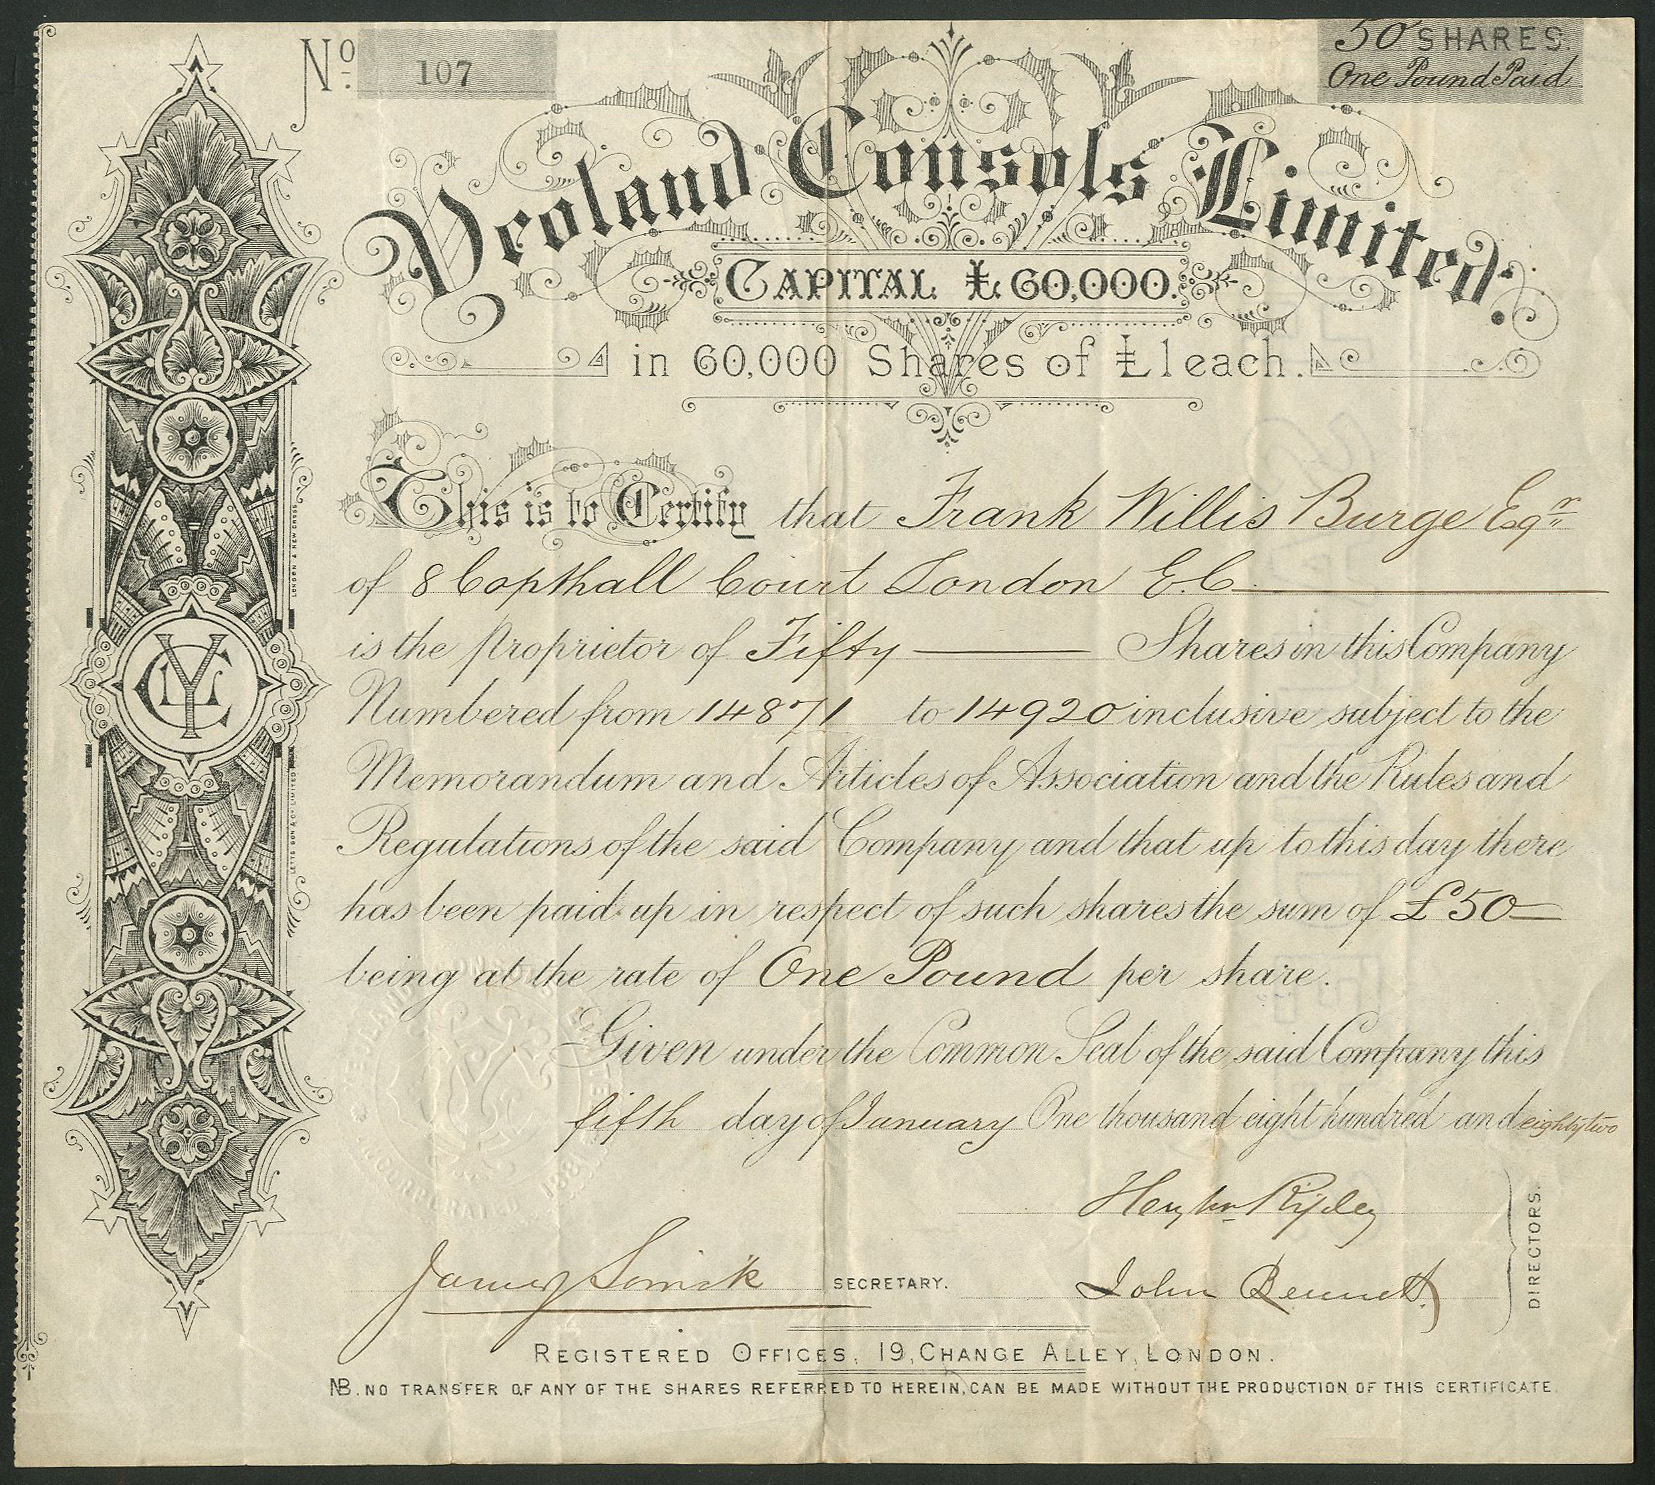 No. 107
50 SHARES.
One Pound Paid
Yeoland Consols Limited.
CAPITAL £60,000.
in 60,000 Shares of £1 each.
This is to Certify that Frank Willis Burge Esqr.
of 8 Copthall Court London E.C.
is the proprietor of Fifty Shares in this Company
Numbered from 14871 to 14920 inclusive subject to the
Memorandum and Articles of Association and the Rules and
Regulations of the said Company and that up to this day there
has been paid up in respect of such shares the sum of £50
being at the rate of One Pound per share.
Given under the Common Seal of the said Company this
fifth day of January One thousand eight hundred and eighty two
INCORPORATED 1881
Ripley
James SECRETARY. John Bennett
DIRECTORS.
REGISTERED OFFICES, 19, CHANGE ALLEY, LONDON.
NB. NO TRANSFER OF ANY OF THE SHARES REFERRED TO HEREIN, CAN BE MADE WITHOUT THE PRODUCTION OF THIS CERTIFICATE.
YCL
LETTS SON & CO LIMITED LONDON & NEW CROSS